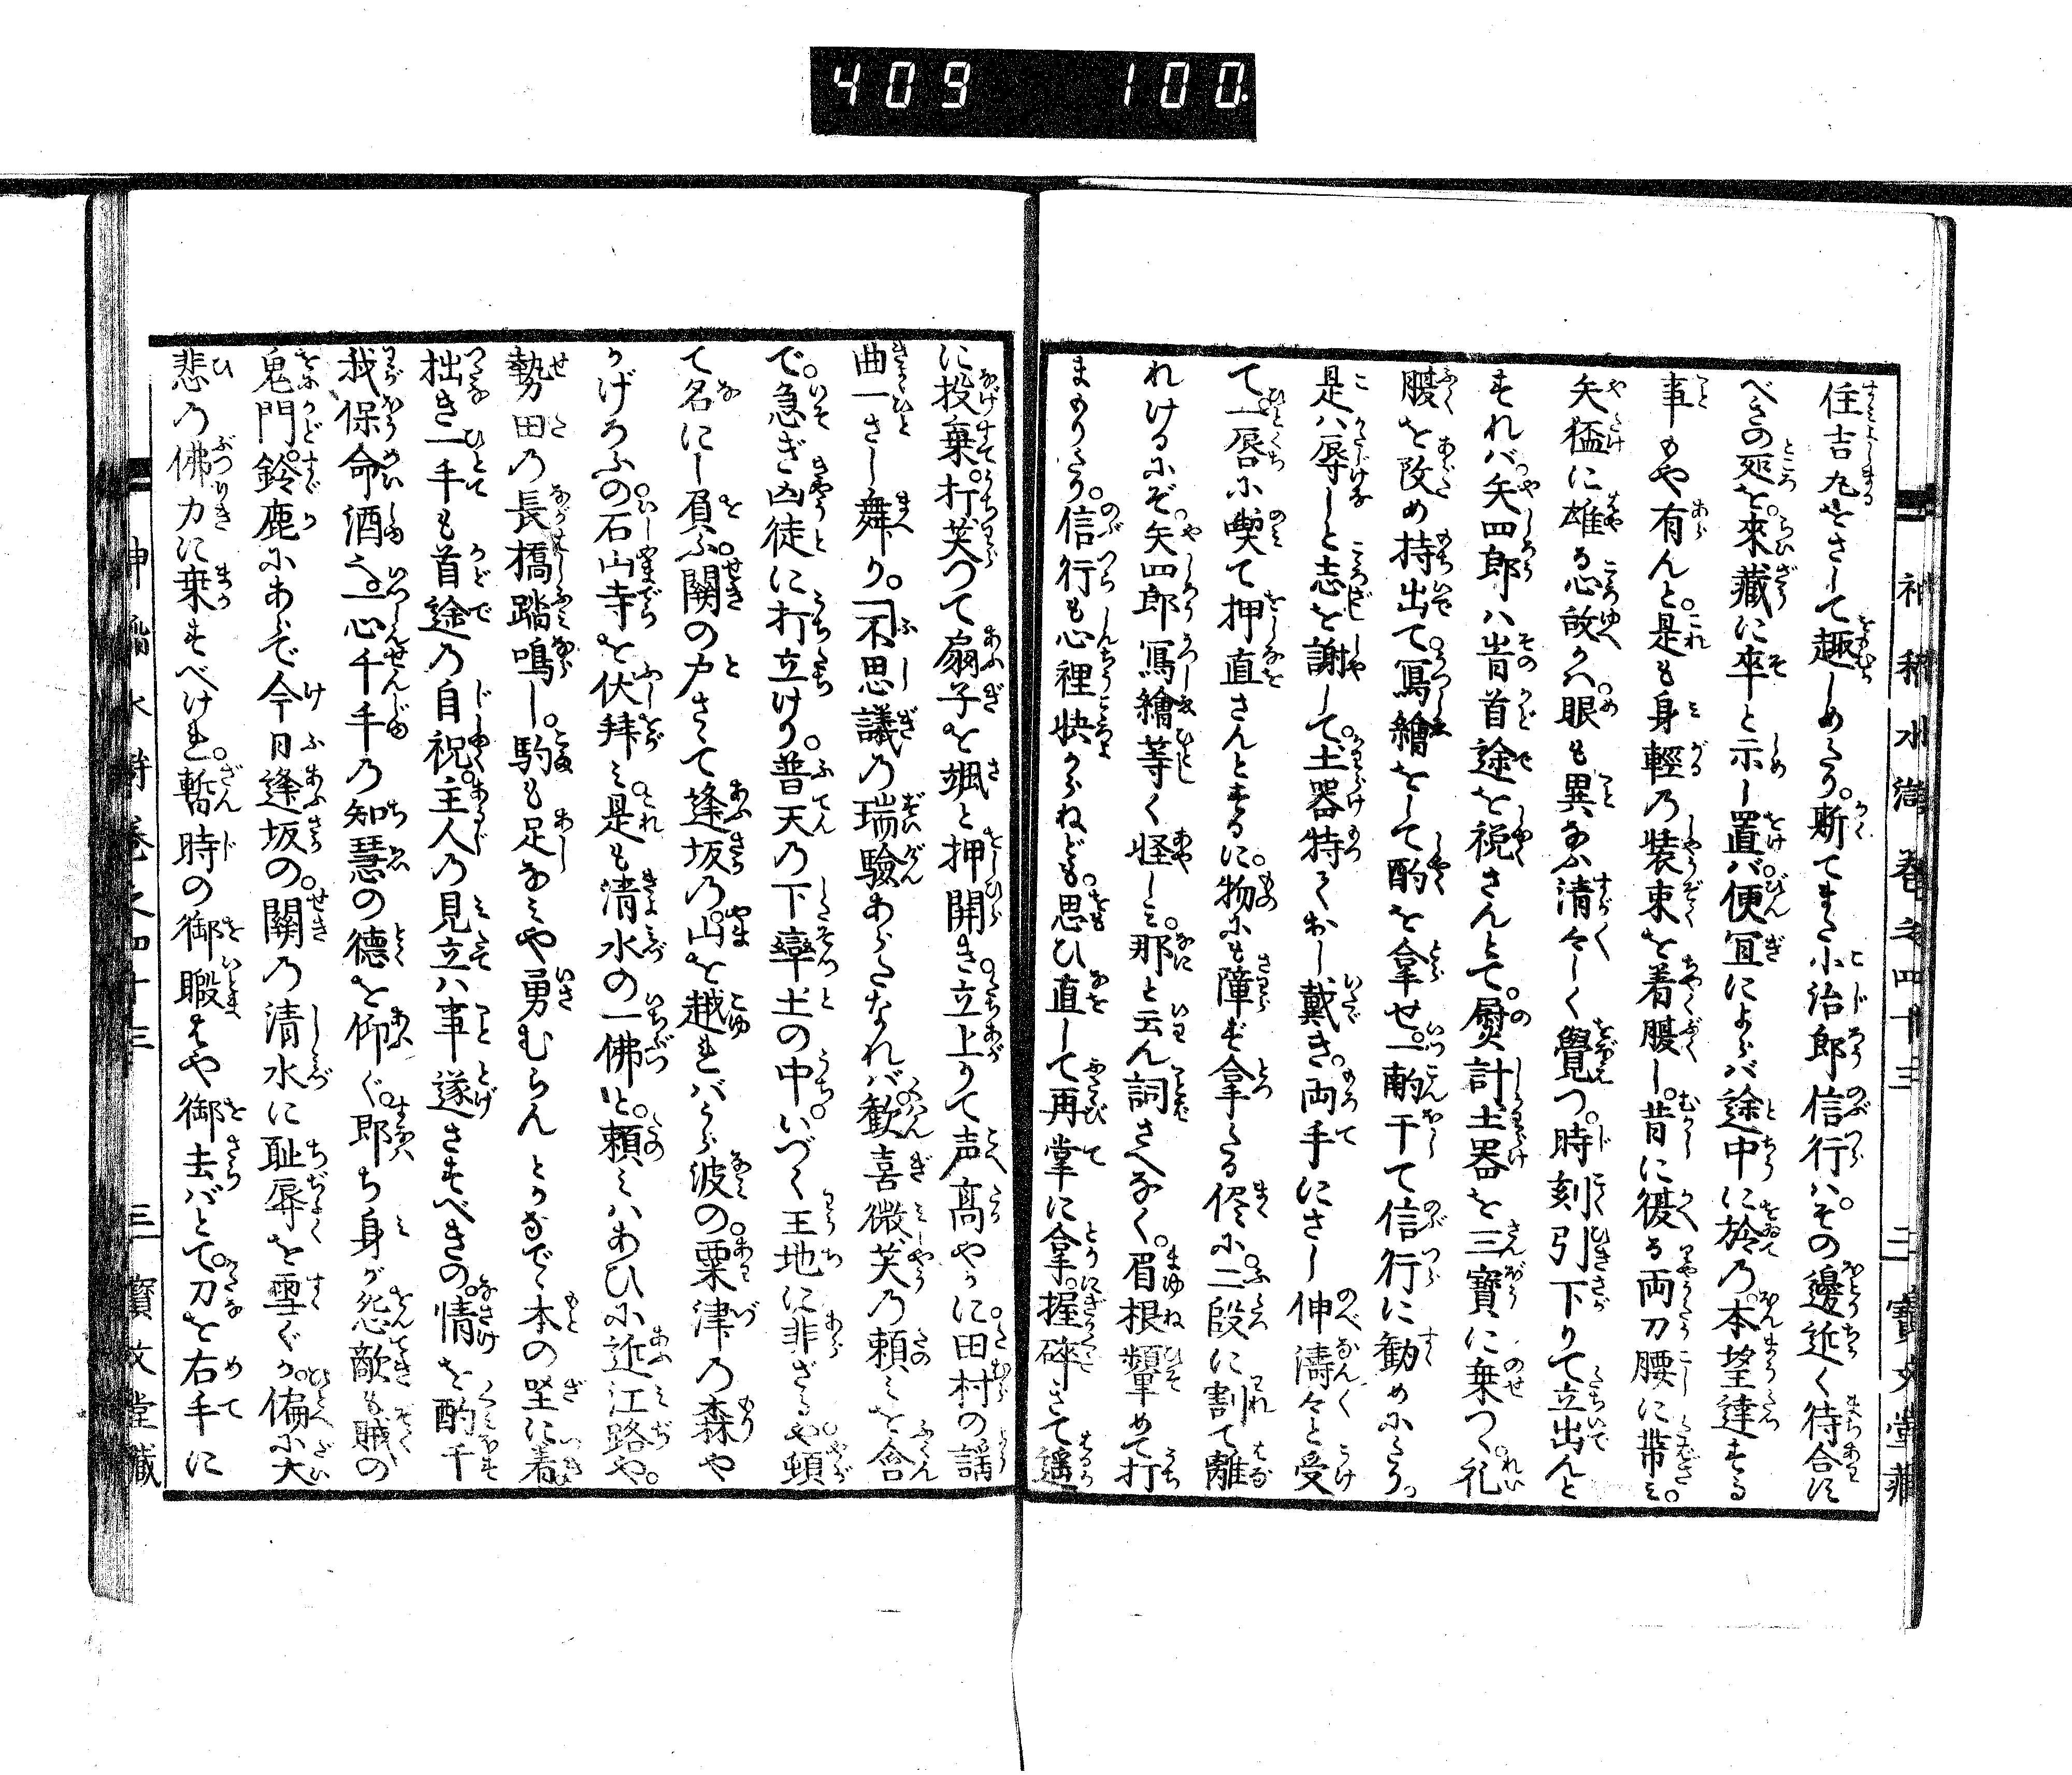 409 100
住吉丸をさして趣しめたり。斯てまた小治郎信行ハ。その邊近く待合に
べきの処を。來藏に卒と示し置バ便冝によらバ途中に於乃。本望達する
事もや有んと。是も身輕乃裝束を着腹し。昔に復る両刀腰に帶ミ。
矢猛に雄る心故か。眼も異なふ清々しく覺つ。時刻引下りて立出んと
すれバ矢四郎ハ首途を祝さんとて。熨計土器を三寳に乗つゝ礼
腹を改め持出て。寫繪をして酌を拿せ。一酌干て信行に勧めふたり。
是ハ辱しと志を謝して。土器特ておし戴き。両手にさし伸濤々と受
て。一唇に喫て押直さんとするに。物にも障ず拿たる侭に。二段に割て離
れけるにぞ。矢四郎寫繪等く怪しミ。那と云ん詞さへなく。眉根顰めて打
まもりたり。信行も心裡快からねども。思ひ直して再掌に拿。握碎きて遥
に投棄。打笑つて扇子を颯と押開き立上りて声高やかに田村の謡
曲一さし舞り。「不思議乃瑞驗あらたなれバ。歓喜微笑の頼ミを含
で。急ぎ凶徒に打立けり。普天乃下率土の中。いづく王地に非ざるや。頓
て名にし眉ふ。關の戸さゝで逢坂乃。山を越れバうら波の。粟津乃森や
かげろふの。石山寺を伏拝ミ是も清水の一佛と。頼ミハあひに近江路や。
勢田の長橋踏鳴し。駒も足なミや勇むらん とかなで、本の坐に着
拙き一手も首途乃自祝。主人乃見立ハ事遂さすべきの。情を酌干
我保命酒之。一心千手乃知慧の徳を仰ぐ。即ち身が怨敵も賊の
鬼門。鈴鹿にあらで今日逢坂の。關乃清水に耻辱を雪ぐが。偏に大
悲乃佛力に乗すべけれ。暫時の御暇はや御去バとて。刀を右手に
水滸 巻之四十三 三 寳文堂藏